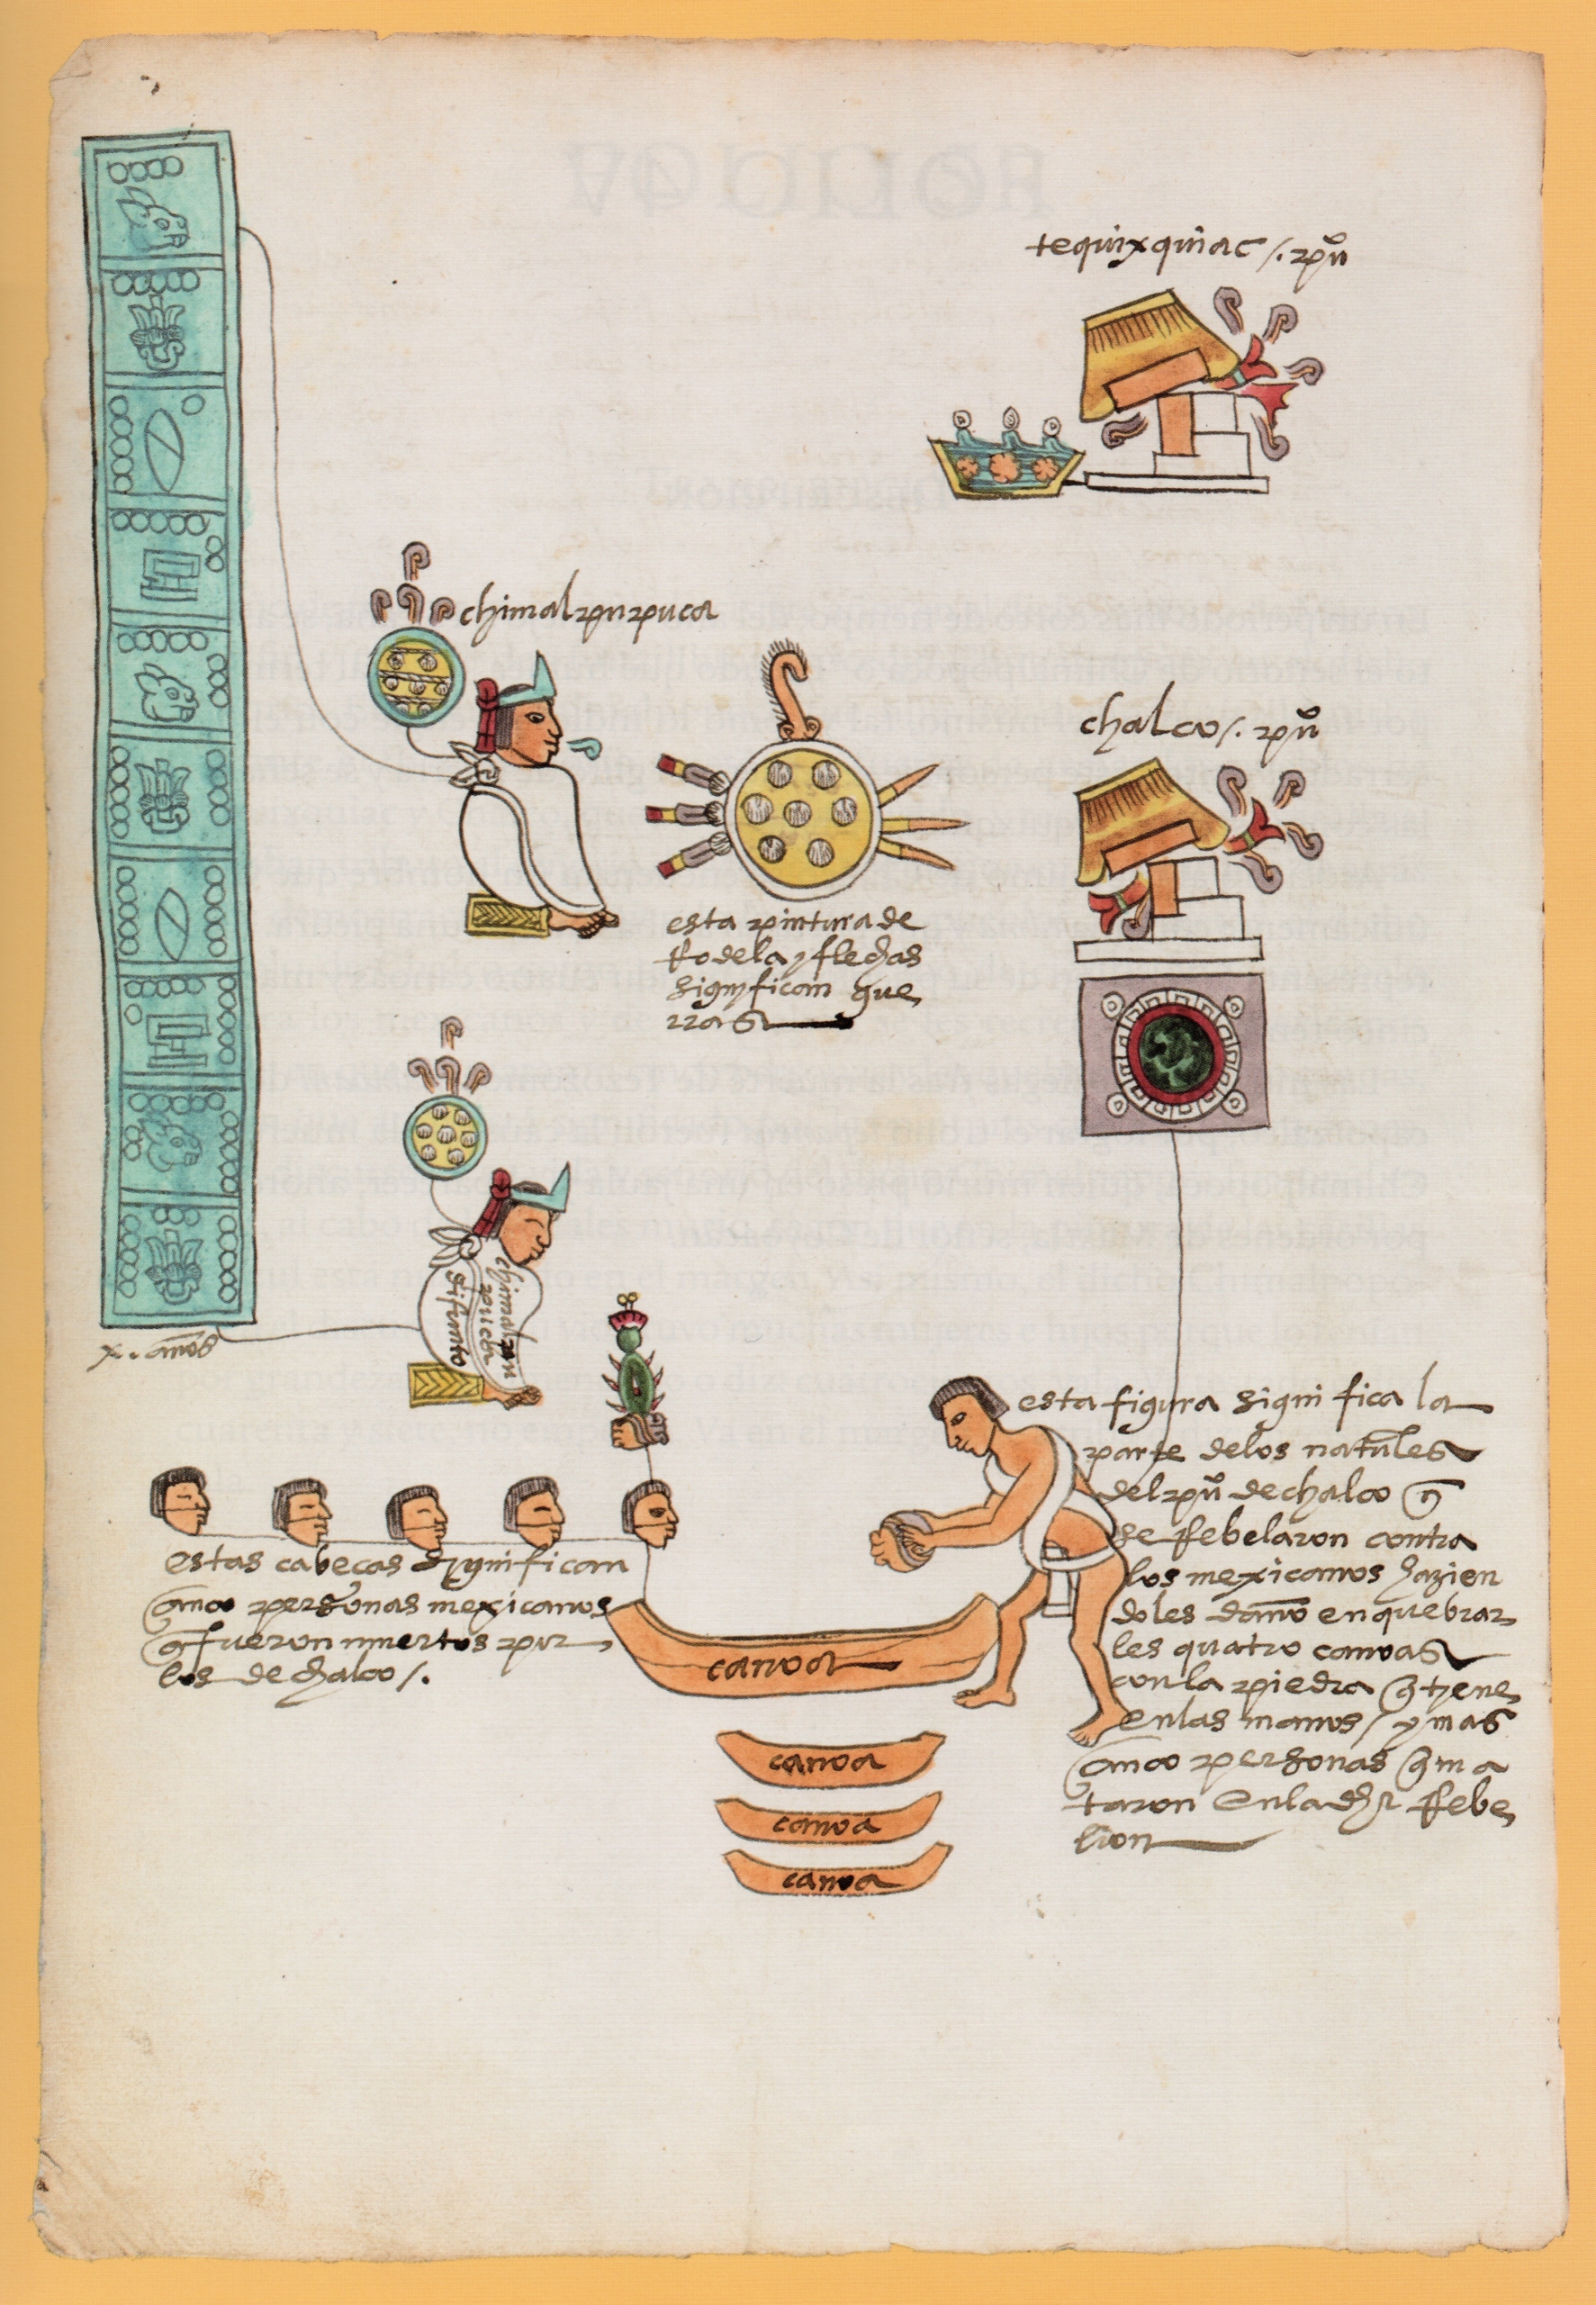 tequixquiac /. pũo
chimalpupuca
chalco /. pũo
esta pintura de
Rodela y flechas
significan gue
rras
chimalpu
puca
difunto
x. años
esta figura signi fica la
parte delos naturales
del pũo de chalco q̃
se Rebelaron contra
los mexicanos hazien
doles daño en quebrar
les quatro canoas
con la piedra q̃ tiene
enlas manos / y mas
cinco personas q̃ ma
taron enla dha Rebe
lion
estas cabeças significan
cinco personas mexicanos
q̃ fueron muertos por
los de chalco /.
canoa
canoa
canoa
canoa